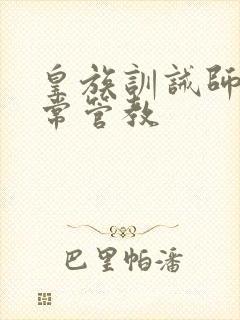 皇族訓誡師
常管教
巴里帕潘